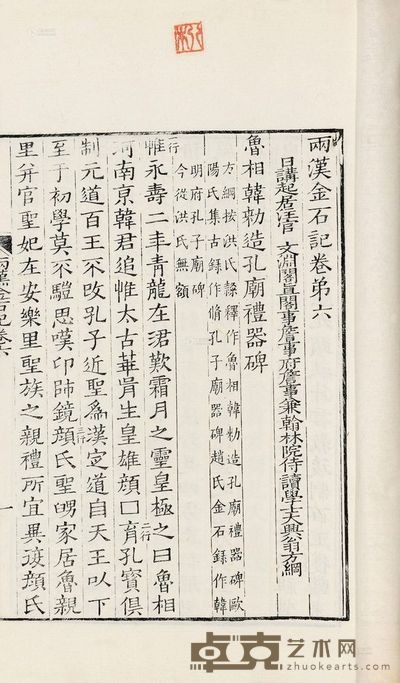 兩漢金石記卷第六
日講起居注官 文淵閣直閣事詹事府詹事兼翰林院侍讀學士大興翁方綱
魯相韓勑造孔廟禮器碑
方綱按洪氏隸釋作魯相韓勑造孔廟禮器碑歐
陽氏集古錄作脩孔子廟器碑趙氏金石錄作韓
明府孔子廟碑
今從洪氏無額
惟永壽二年青龍在涒歎霜月之靈皇極之日魯相
一行
河南京韓君追惟太古華胥生皇雄顔口育孔寶俱
二行
制元道百王不改孔子近聖爲漢定道自天王以下
至于初學莫不驥思嘆卬師鏡顔氏聖舅家居魯親
三行
里幷官聖妃在安樂里聖族之親禮所宜異復顔氏
兩漢金石記卷六
一
卓克艺术网
zhuokearts.com